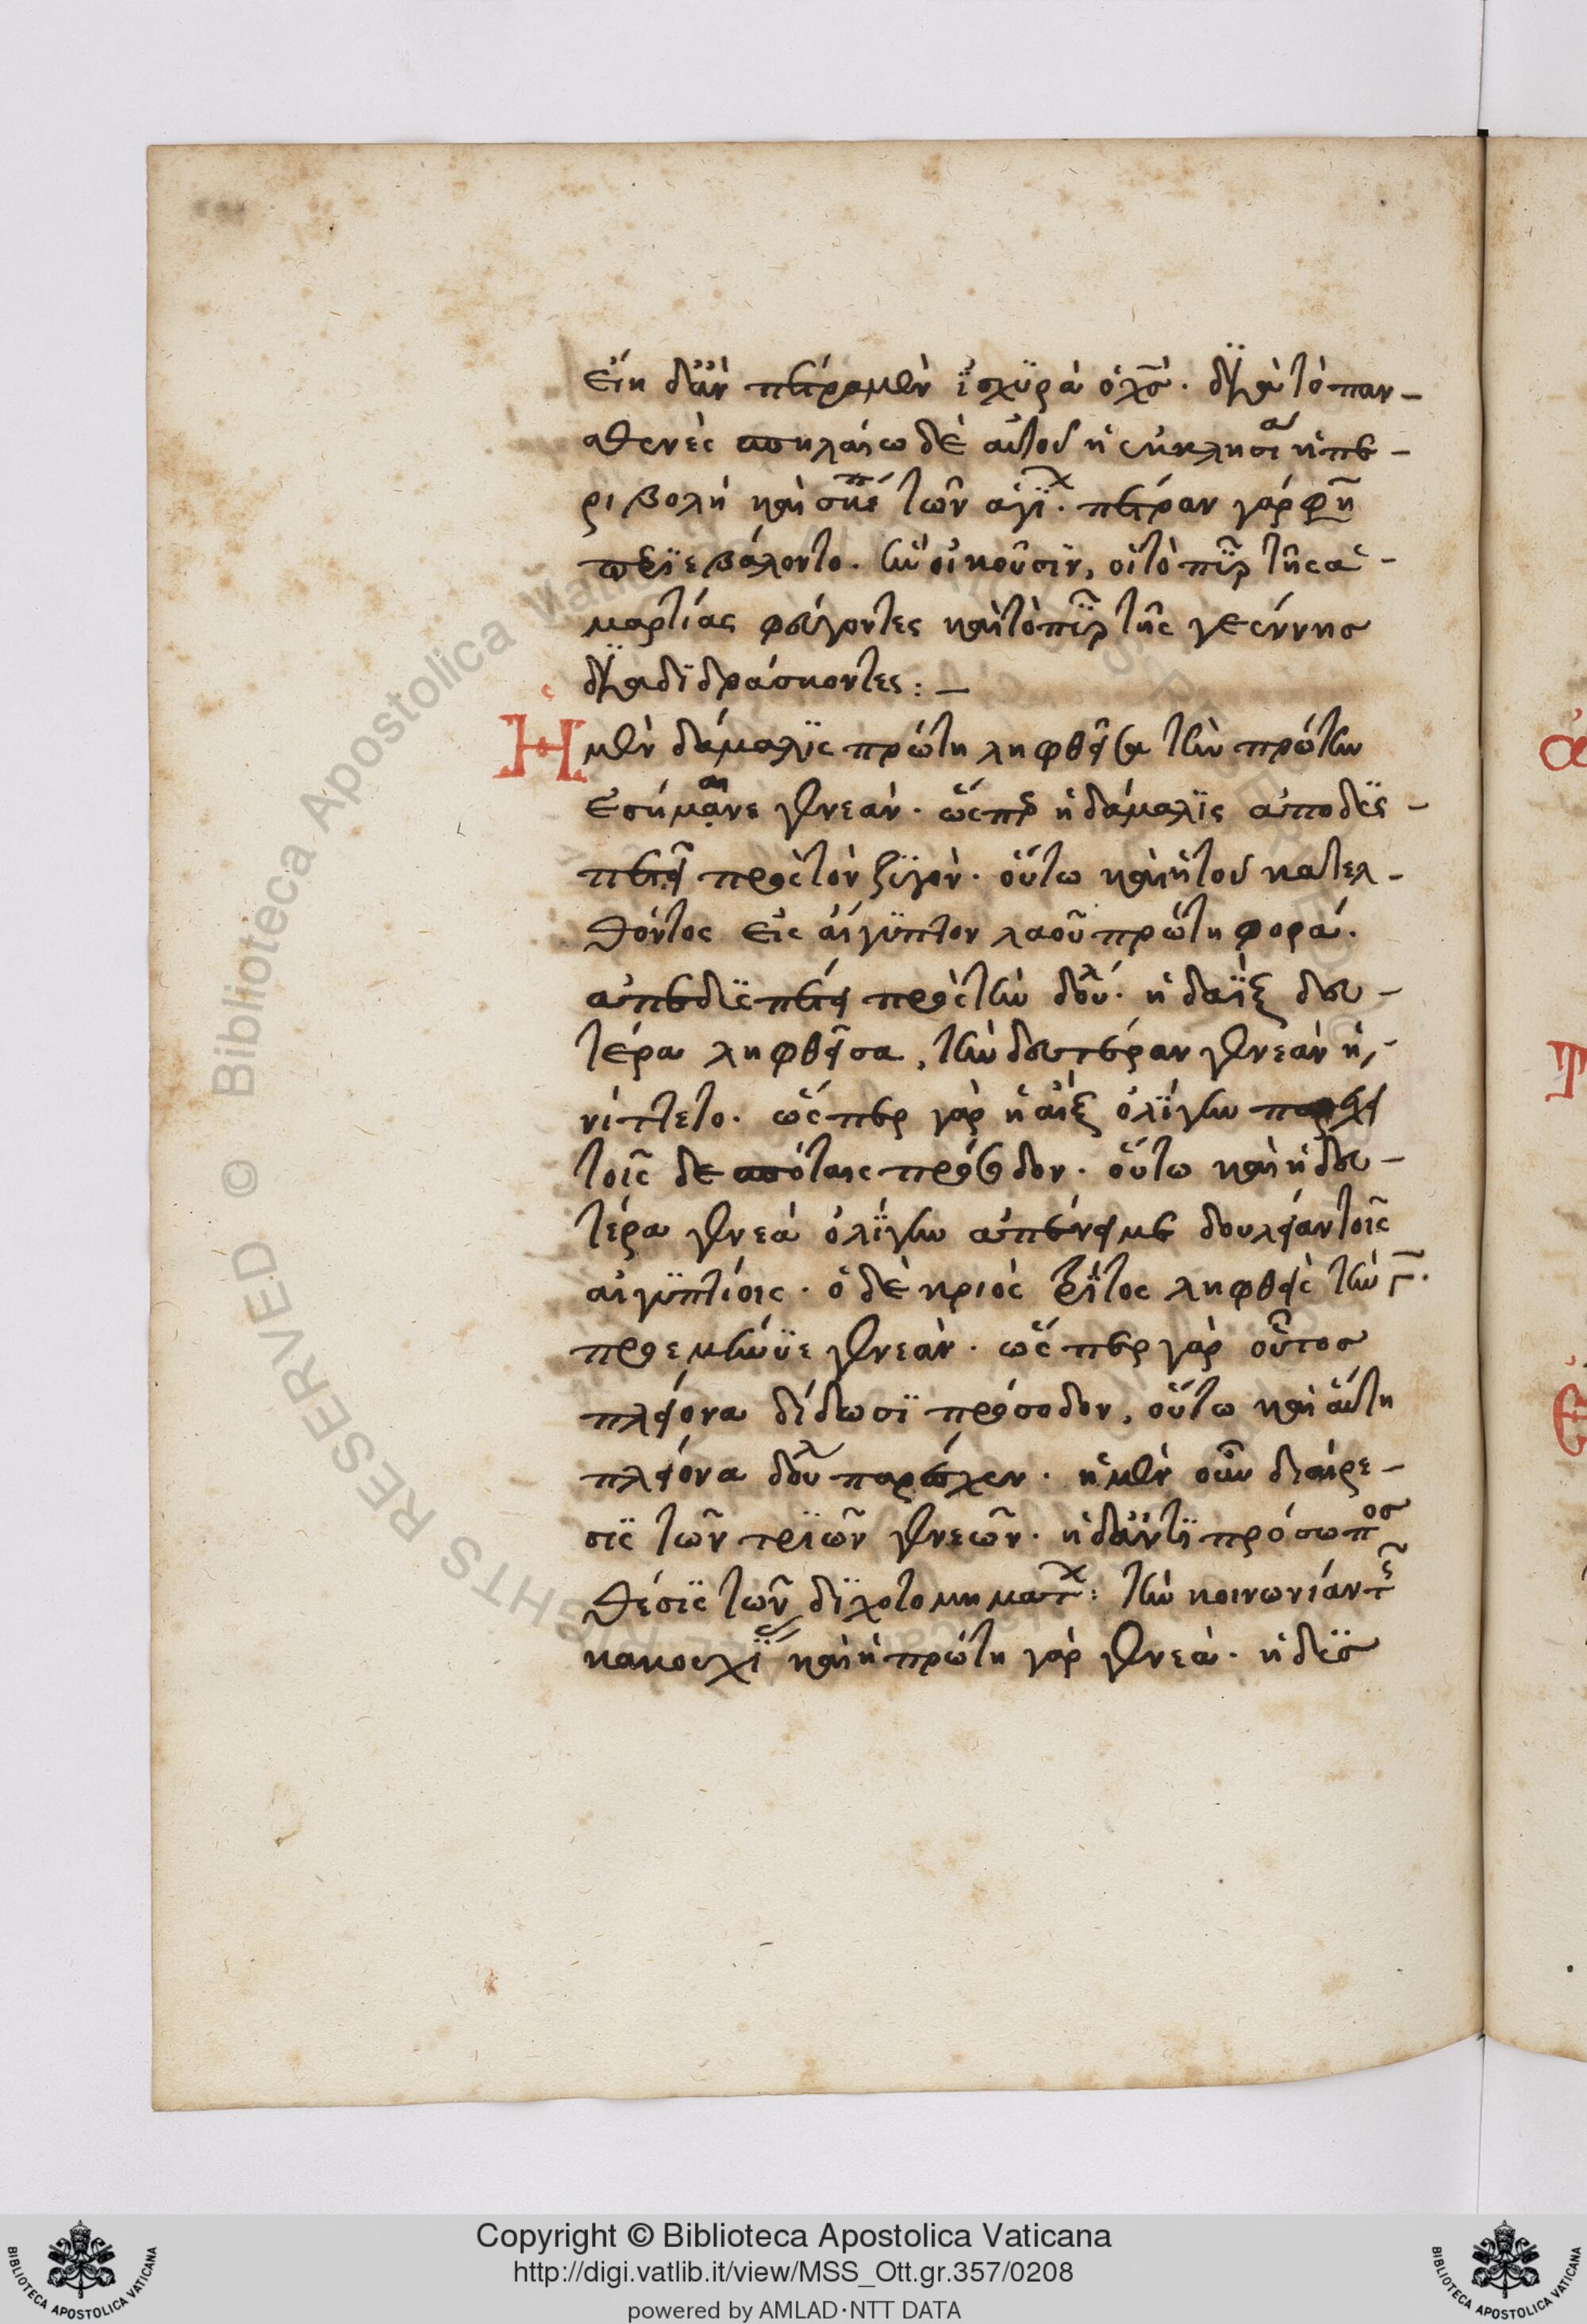 εἴη δ' ἂν πέτρα μὲν ἰσχυρὰ ὁ χς. διὰ τὸ παν-
ασθενὲς σπηλαίω δὲ αὐτοῦ ἡ ἐκκλησία ἡ πε-
ριβολὴ καὶ σκέπη τῶν ἁγίων. πέτραν γάρ φη
περιεβάλοντο. ἣν οἰκοῦσιν, οἱ τὸ πῦρ τῆς ἁ-
μαρτίας φεύγοντες καὶ τὸ πῦρ τῆς γεέννης
διαδιδράσκοντες: —
Ἡ μὲν δάμαλις πρώτη ληφθεῖσα τὴν πρώτην
ἐσήμανε γενεάν. ὥσπερ ἡ δάμαλις
πρὸς τὸν ζυγόν. οὕτω καὶ ἡ τοῦ κατελ-
θόντος εἰς αἴγυπτον λαοῦ πρώτη φορά.
πρὸς τὴν δουλ. ἡ δ' αἲξ δευ-
τέρα ληφθεῖσα, τὴν δευτέραν γενεὰν ἠ-
νίττετο. ὥσπερ γὰρ ἡ αἲξ ὀλίγην παρέχει
τοῖς δεσπόταις πρόσοδον. οὕτω καὶ ἡ δευ-
τέρα γενεὰ ὀλίγην ἀπένειμε δουλείαν τοῖς
αἰγυπτίοις. ὁ δὲ κριὸς τρίτος ληφθεὶς τὴν γ.
προεμήνυε γενεάν. ὥσπερ γὰρ οὗτος
πλείονα δίδωσι πρόσοδον, οὕτω καὶ αὕτη
πλείονα δουλ παρέσχεν. ἡ μὲν οὖν διαίρε-
σις τῶν τριῶν γενεῶν. ἡ δ' ἀντιπρόσωπος
θέσις τῶν διχοτομημάτων: τὴν κοινωνίαν τς
κακουχί καὶ ἡ πρώτη γὰρ γενεά. ἡ δὲς